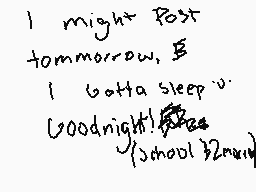 I might Post
tommorrow,
I Gotta sleep ·u·
Goodnight!
(school